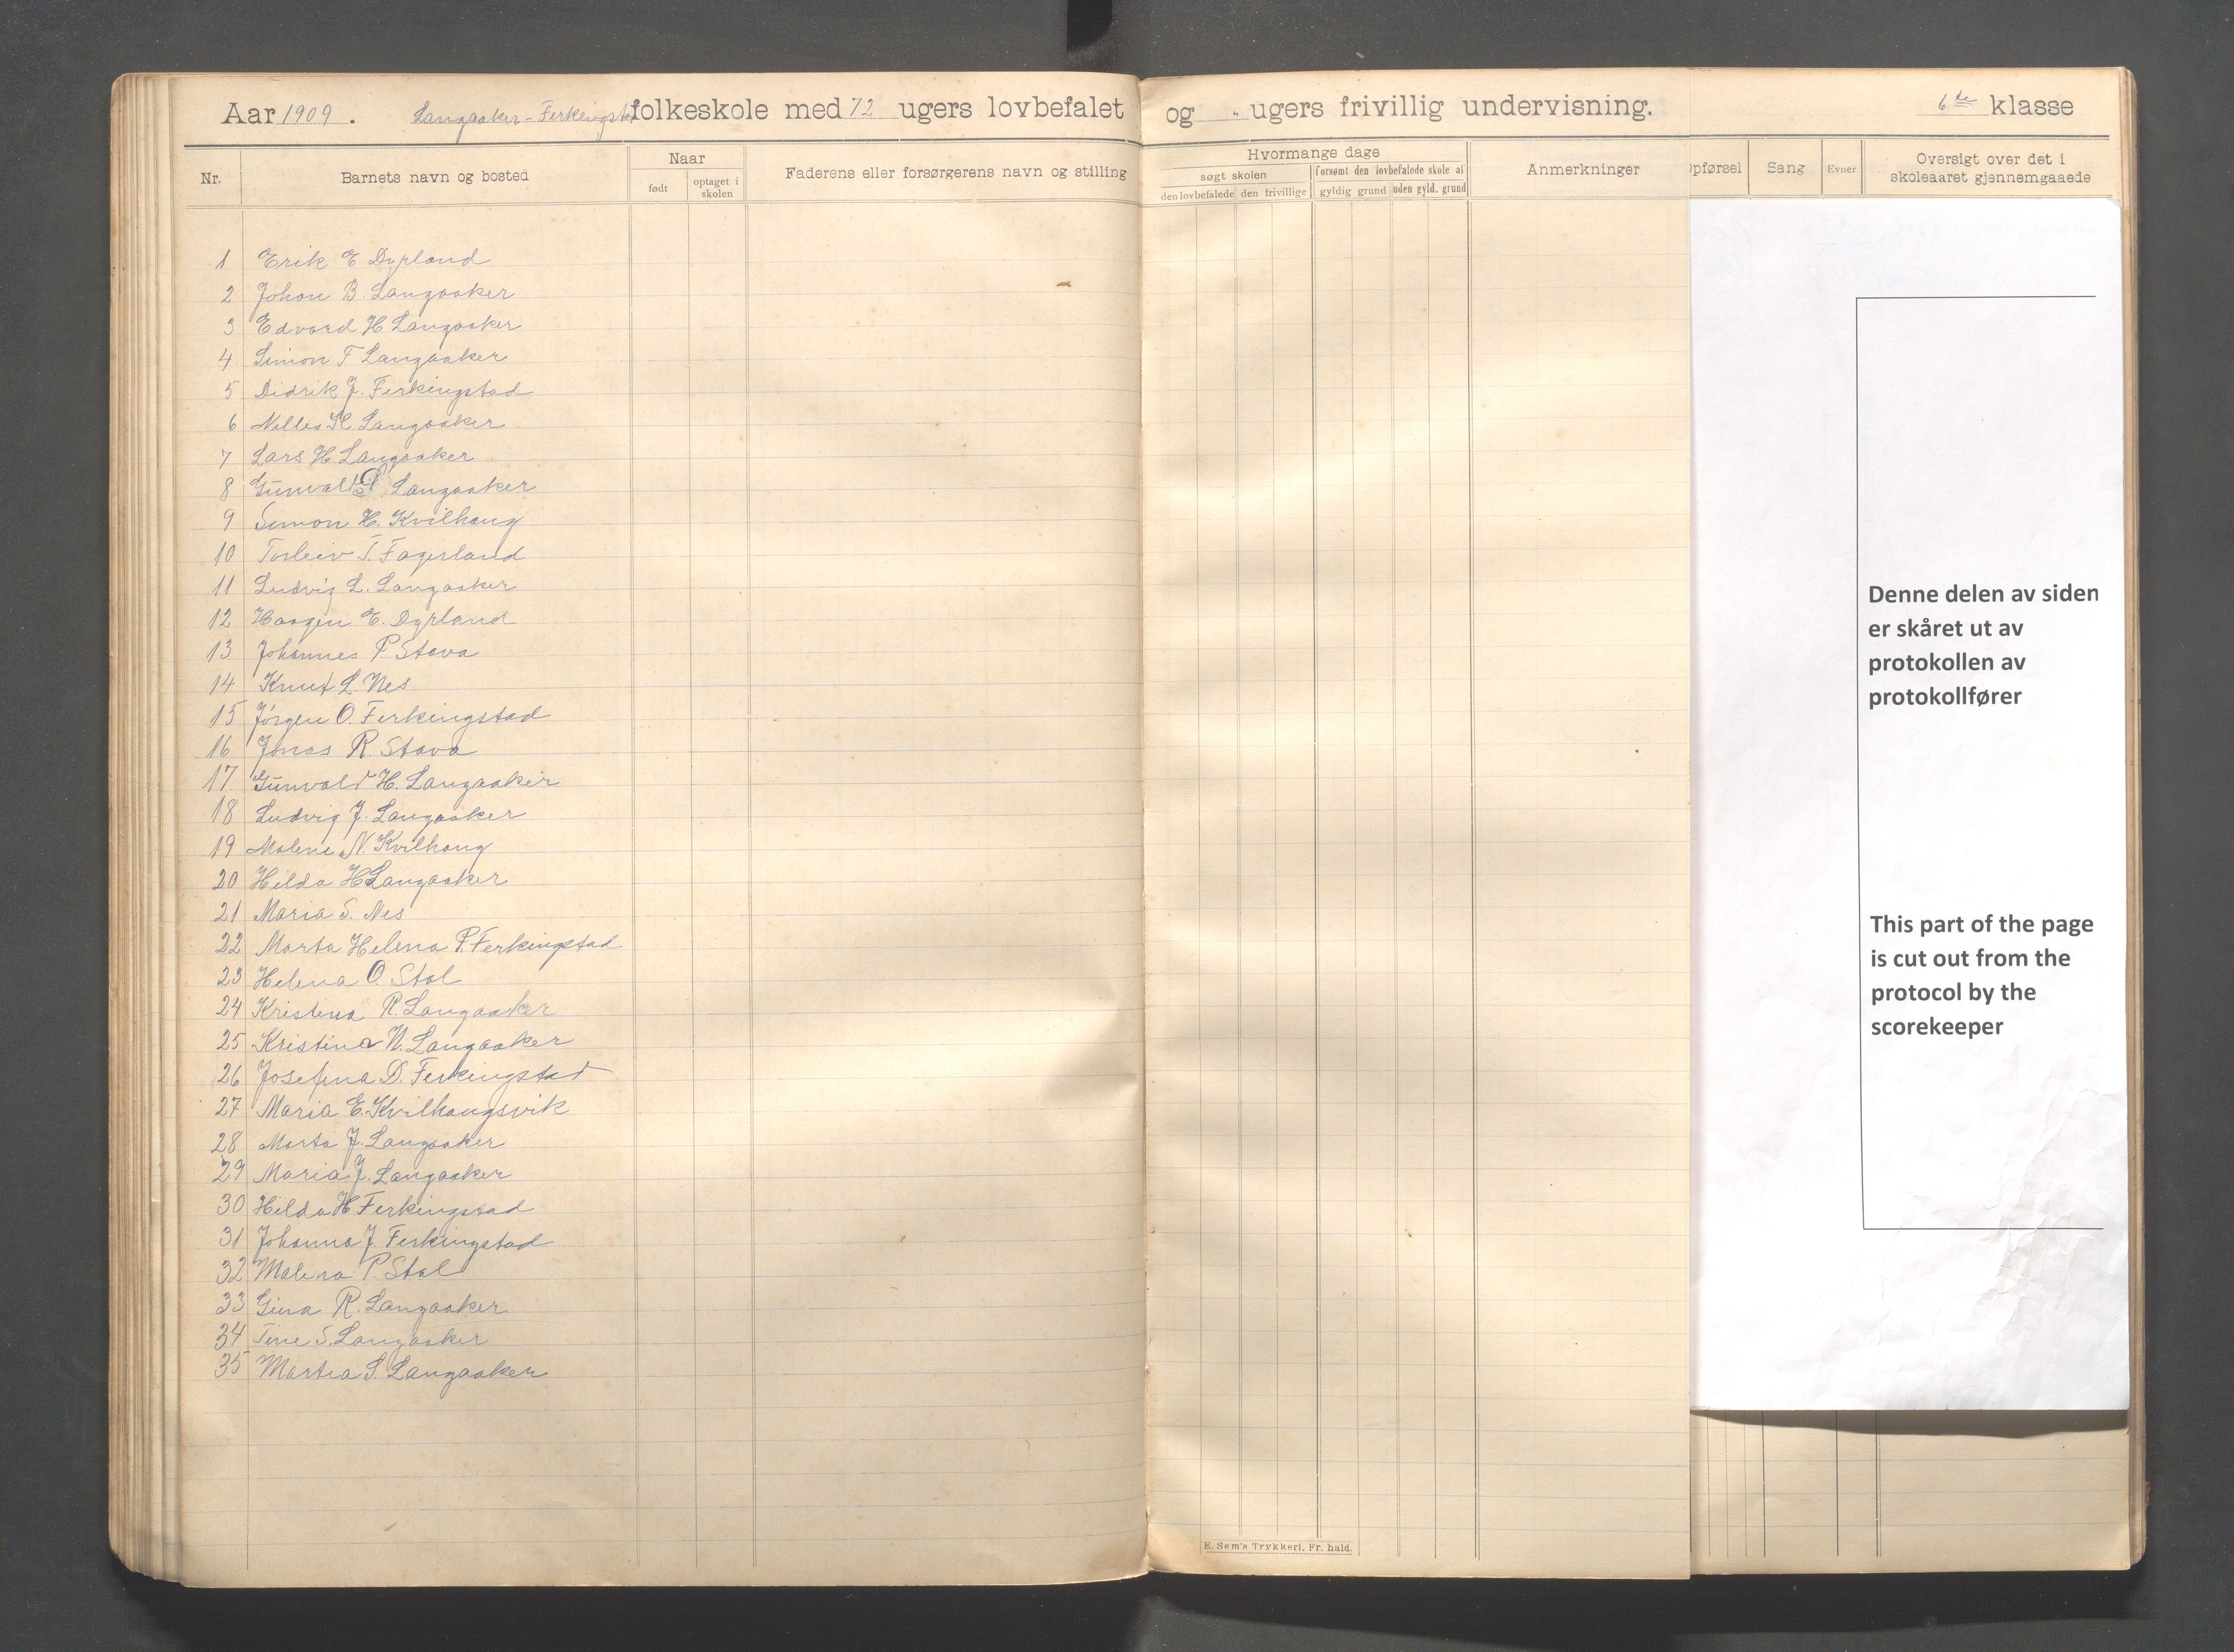 Aar 1909. Langaaker-Ferkingstad folkeskole med 72 ugers lovbefalet og " ugers frivillig undervisning. 6de klasse
Nr.
Barnets navn og bosted
Naar
født
optaget i skolen
Faderens eller forsørgerens navn og stilling
Hvormange dage
søgt skolen
forsømt den lovbefalede skole af
den lovbefalede
den frivillige
gyldig grund
uden gyld. grund
Anmerkninger
Opførsel
Sang
Evner
Oversigt over det i
skoleaaret gjennemgaaede
1 Erik E Dyrland
2 Johan B. Langaaker
3 Edvard H Langaaker
4 Simon F Langaaker
5 Didrik J. Ferkingstad
6 Nilles H. Langaaker
7 Lars H Langaaker
8 Gunvald Langaaker
9 Simon H. Kvilhaug
10 Torleiv T. Fagerland
11 Ludvig L. Langaaker
12 Haagen E. Dyrland
13 Johannes P Stava
14 Knut L. Nes
15 Jørgen O. Ferkingstad
16 Jonas R. Stava
17 Gunvald H. Langaaker
18 Ludvig J. Langaaker
19 Malene N. Kvilhaug
20 Hilda H Langaaker
21 Maria S. Nes
22 Marta Helena P. Ferkingstad
23 Helena O Stol
24 Kristina R. Langaaker
25 Kristina N. Langaaker
26 Josefina D. Ferkingstad
27 Maria E. Kvilhaugsvik
28 Marta J. Langaaker
29 Maria J. Langaaker
30 Hilda H Ferkingstad
31 Johanna J. Ferkingstad
32 Malena P. Stol
33 Gina R. Langaaker
34 Tine S. Langaaker
35 Martea S Langaaker
E. Sem's Trykkeri, Fr. hald.
Denne delen av siden
er skåret ut av
protokollen av
protokollfører
This part of the page
is cut out from the
protocol by the
scorekeeper